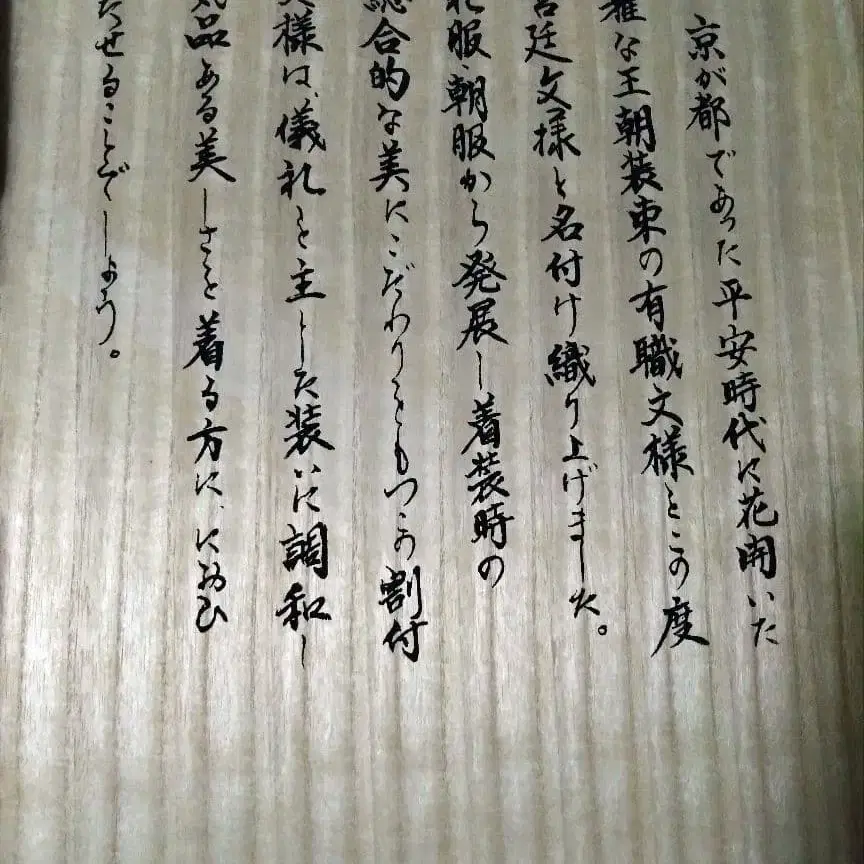 京が都であった平安時代に花開いた
雅な王朝装束の有職文様をこの度
宮廷文様と名付け織り上げました。
礼服、朝服から発展し着装時の
総合的な美にこだわりをもつこの割付
文様は、儀礼を主とした装いに調和し
気品ある美しさを着る方に、におひ
たせることでしょう。